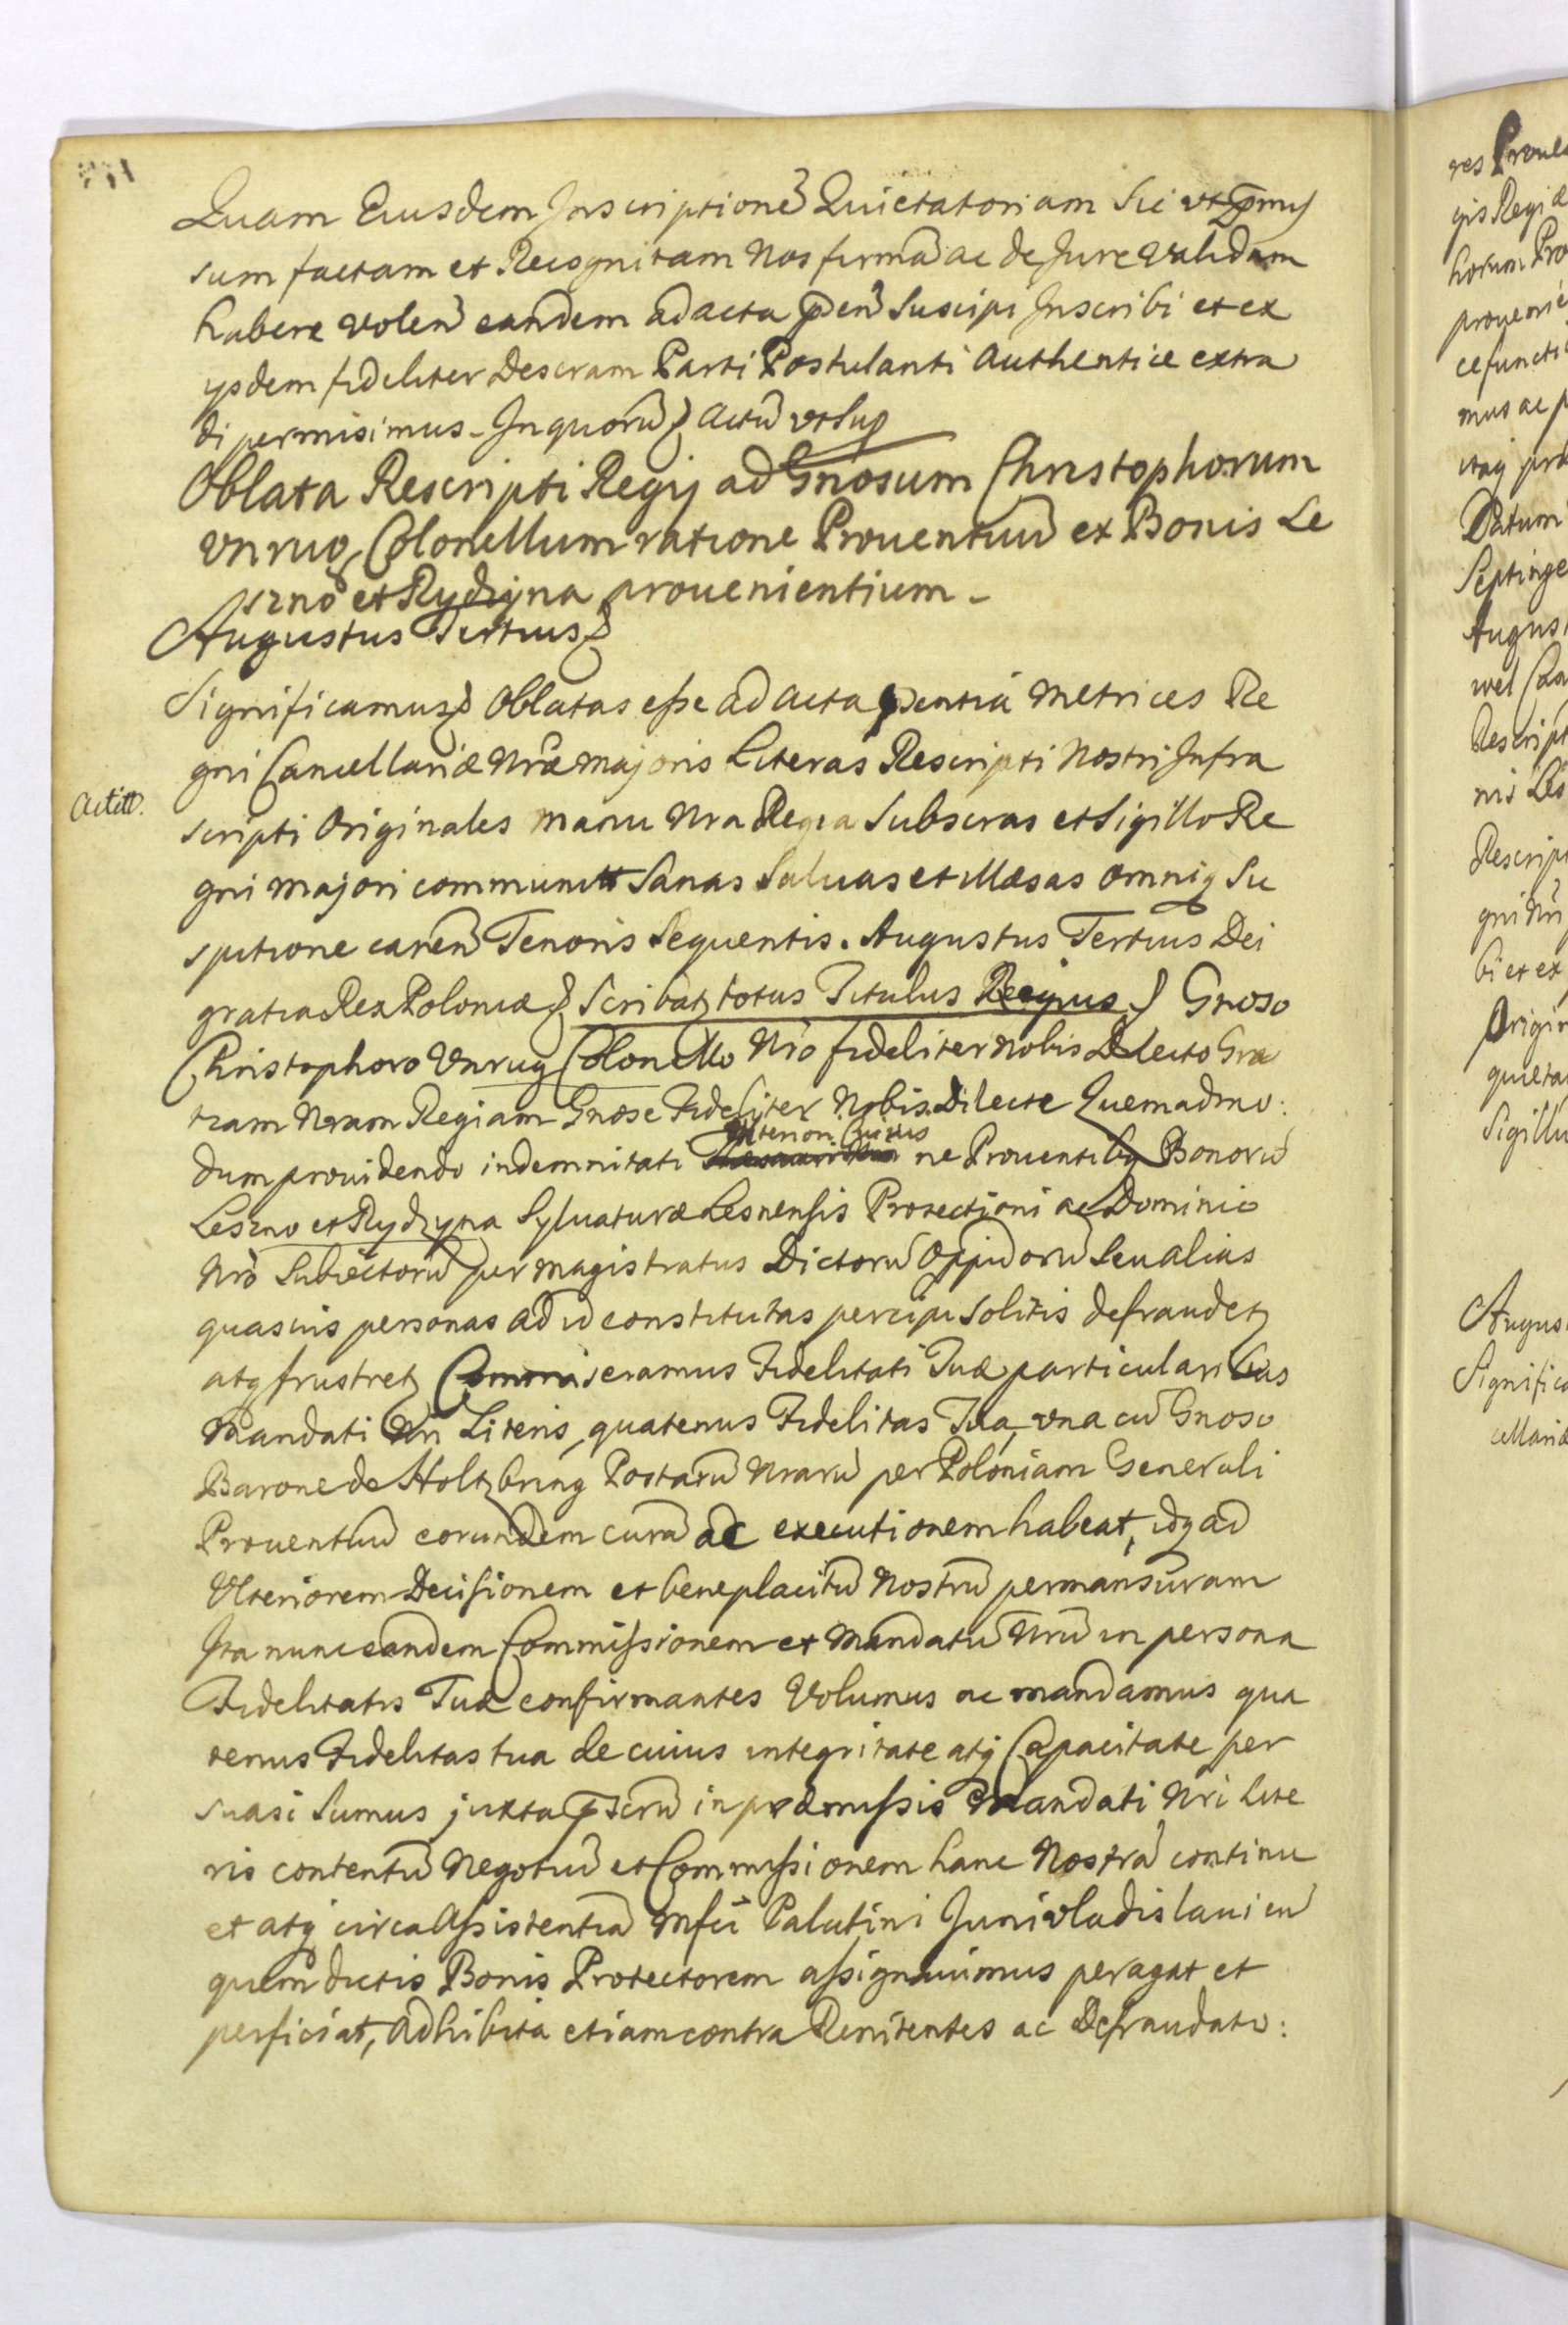 Quam Eiusdem Inscriptionē Quietatoriam Sic ut
sum factam et Recognitam Nos firmā ac de Jure validam
habere volen̄ eandem ad acta p̄sen̄ Suscipi Inscribi et ex
ysdem fideliter Descram Parti Postulanti Authentice extra
di permisimus. In quorū Actū ut Sup
Oblata Rescripti Regij ad Gnosum Christophorum
Unrug Colonellum ratione Prouentuū ex Bonis Le
szno et Rydzyna prouenientium.
Augustus Tertius
Significamus Oblatas esse ad Acta p̄sentia Metrices Re
gni Cancellariæ Nr̄æ majoris Literas Rescripti Nostri Infra
Actitt.
scripti Originales manu Nra Regia Subscras et Sigillo Re
gni majori communitt Sanas Saluas et illæsas omniq Su
spitione caren̄ Tenoris Sequentis. Augustus Tertius Dei
gratia Rex Poloniæ Scribatz totus Titulus Regius Gnoso
Christophoro Unrug Colonello Nr̄o fideliter Nobis Dilecto Gra
tiam Nram Regiam Gnose Fideliter Nobis Dilecte Quemadmo:
dum prouidendo indemnitati ulteriori ne Prouentibq Bonorū
Leszno et Rydzyna Syluaturæ Lesnensis Protectioni ac Dominio
Nr̄o Subiectorū per Magistratus Dictorū Oppidorū Seu alias
quascuis personas ad id constitutas percipi Solitis defraudetz
atq frustretz Commiseramus Fidelitati Tuæ particularibus
Mandati Nri Literis, quatenus Fidelitas Tua, una cū Gnoso
Barone de Holtzbring Postarū Nrarū per Poloniam Generali
Prouentuū eorundem curā ac executionem habeat, idq ad
Ulteriorem Decisionem et beneplacitū Nostrū permansuram
Ita nunc eandem Commissionem et Mandatū Nrū in persona
Fidelitatis Tuæ confirmantes Volumus ac mandamus qua
tenus Fidelitas tua de cuius integritate atq Capacitate per
suasi Sumus juxta p̄scrū in præmissis Mandati Nri Lite
ris contentū Negotiū et Commissionem hanc Nostrā continu
et atq circa Assistentiā Mfci Palatini Junivladislauien̄
quem dictis Bonis Protectorem assignauimus peragat et
perficiat, adhibita etiam contra Renitentes ac Defraudato: